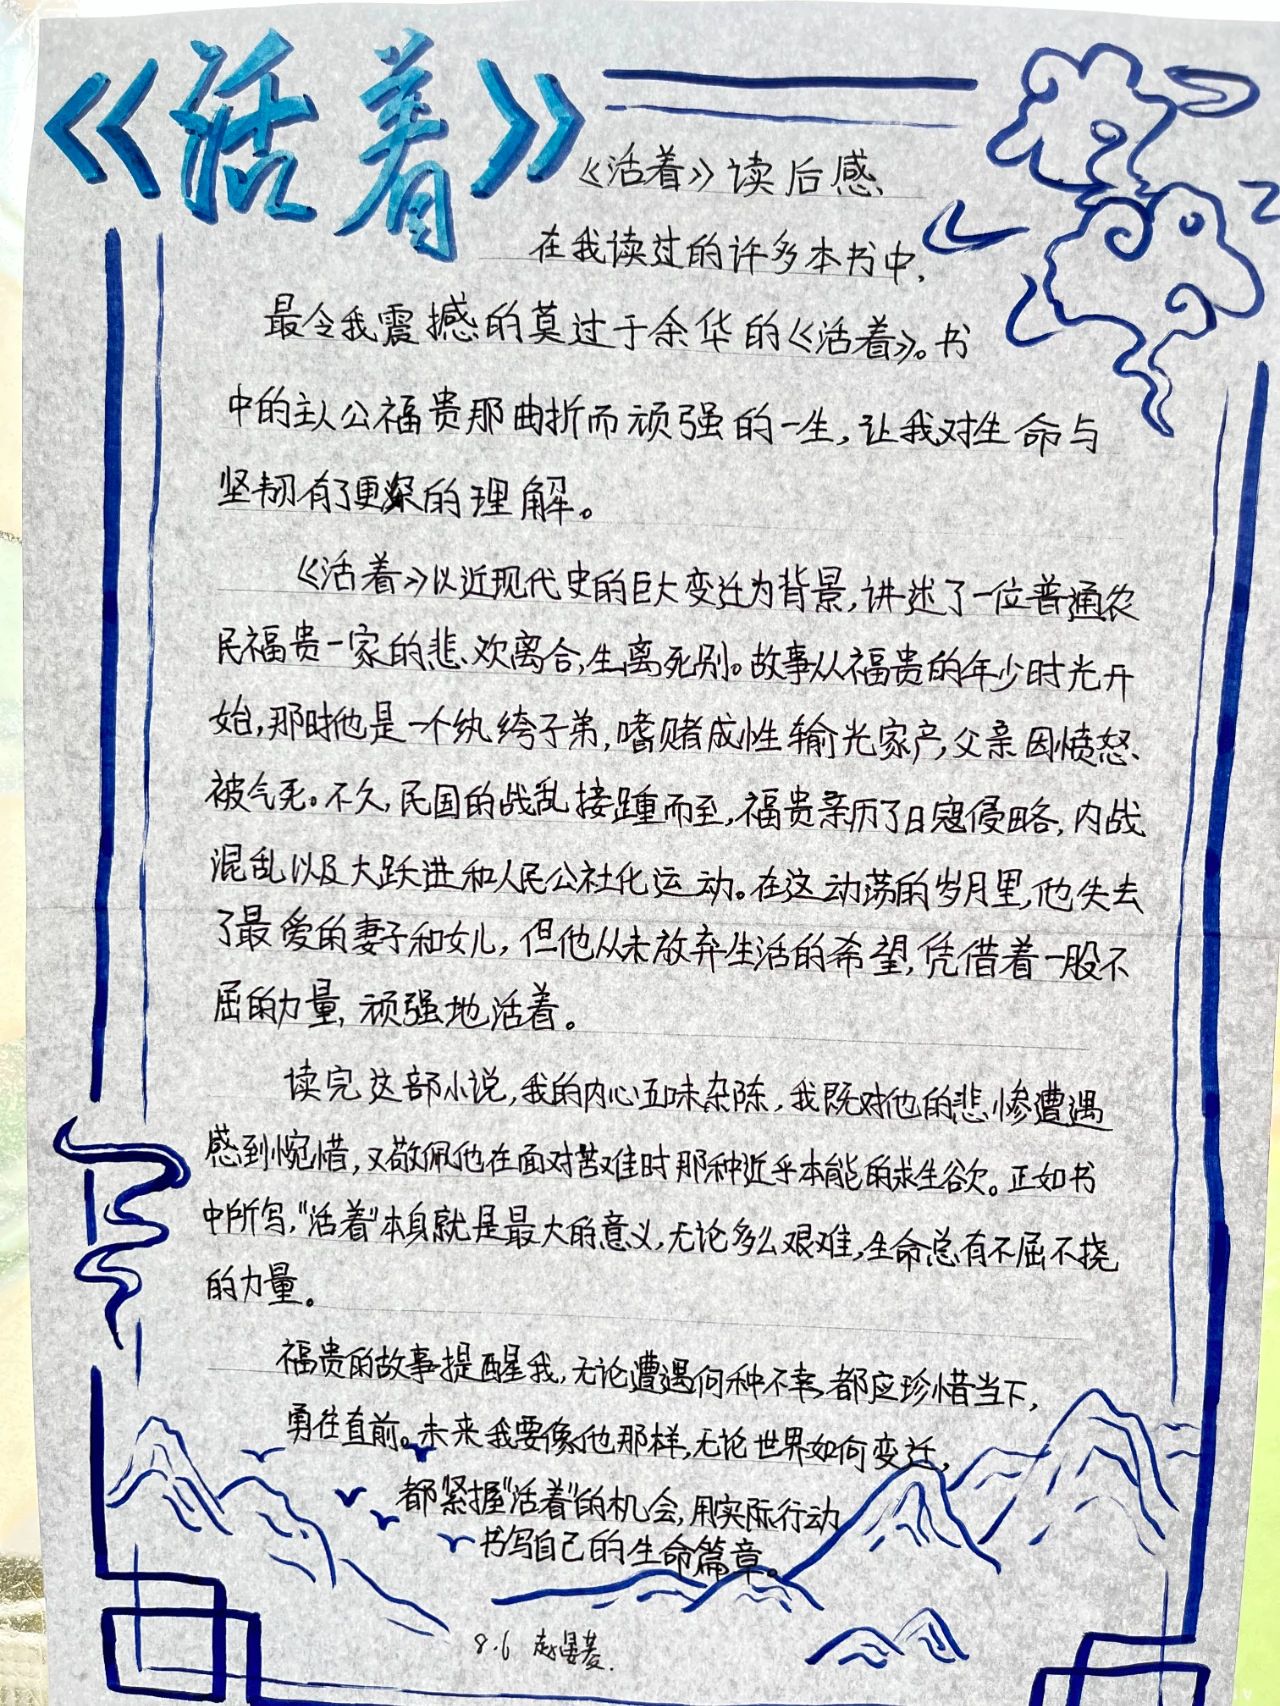 《活着》
《活着》读后感
在我读过的许多本书中,
最令我震撼的莫过于余华的《活着》。书
中的主人公福贵那曲折而顽强的一生,让我对生命与
坚韧有了更深的理解。
《活着》以近现代史的巨大变迁为背景,讲述了一位普通农
民福贵一家的悲欢离合,生离死别。故事从福贵的年少时光开
始,那时他是一个纨绔子弟,嗜赌成性输光家产,父亲因愤怒
被气死。不久,民国的战乱接踵而至,福贵亲历了日寇侵略,内战
混乱以及大跃进和人民公社化运动。在这动荡的岁月里,他失去
了最爱的妻子和女儿,但他从未放弃生活的希望,凭借着一股不
屈的力量,顽强地活着。
读完这部小说,我的内心五味杂陈,我既对他的悲惨遭遇
感到惋惜,又敬佩他在面对苦难时那种近乎本能的求生欲。正如书
中所写,"活着"本身就是最大的意义,无论多么艰难,生命总有不屈不挠
的力量。
福贵的故事提醒我,无论遭遇何种不幸,都应珍惜当下,
勇往直前。未来我要像他那样,无论世界如何变迁,
都紧握"活着"的机会,用实际行动
书写自己的生命篇章。
8.6 赵